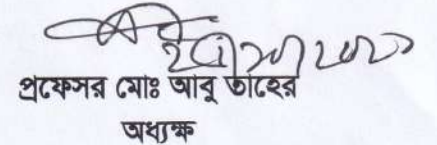 প্রফেসর মোঃ আবু তাহের
অধ্যক্ষ